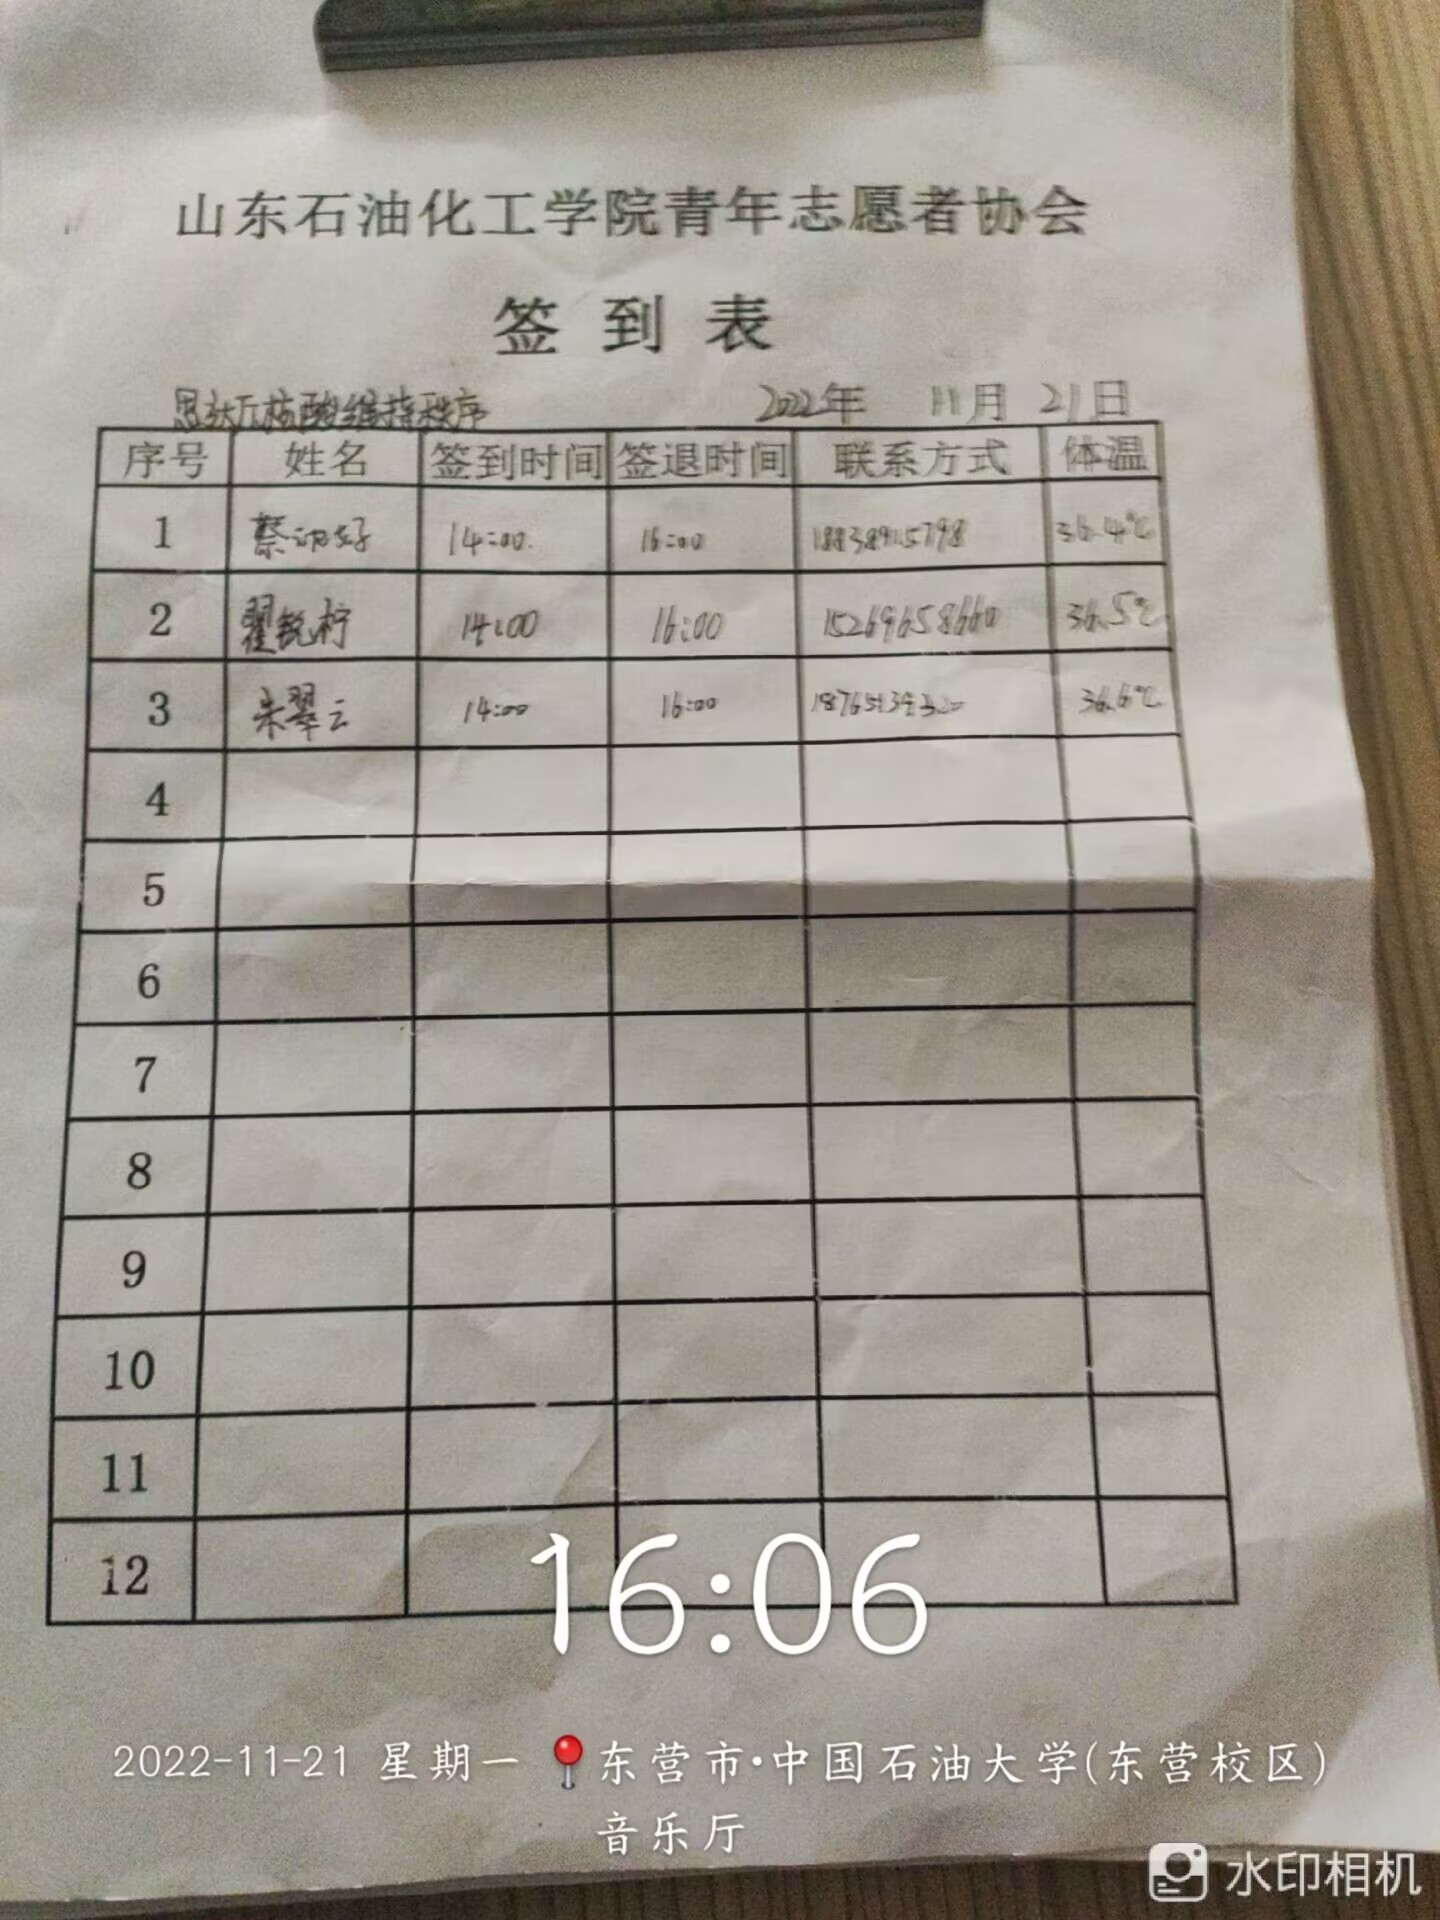 山东石油化工学院青年志愿者协会
签 到 表
思达厅核酸维持秩序 2022年 11月 21日
序号 姓名 签到时间 签退时间 联系方式 体温
1 蔡 好 14:00. 16:00 36.4℃
2 翟锐柠 14:00 16:00 15269658660 36.5℃
3 朱翠云 14:00 16:00 36.6℃
4
5
6
7
8
9
10
11
12
16:06
2022-11-21 星期一 东营市·中国石油大学(东营校区)
音乐厅
水印相机